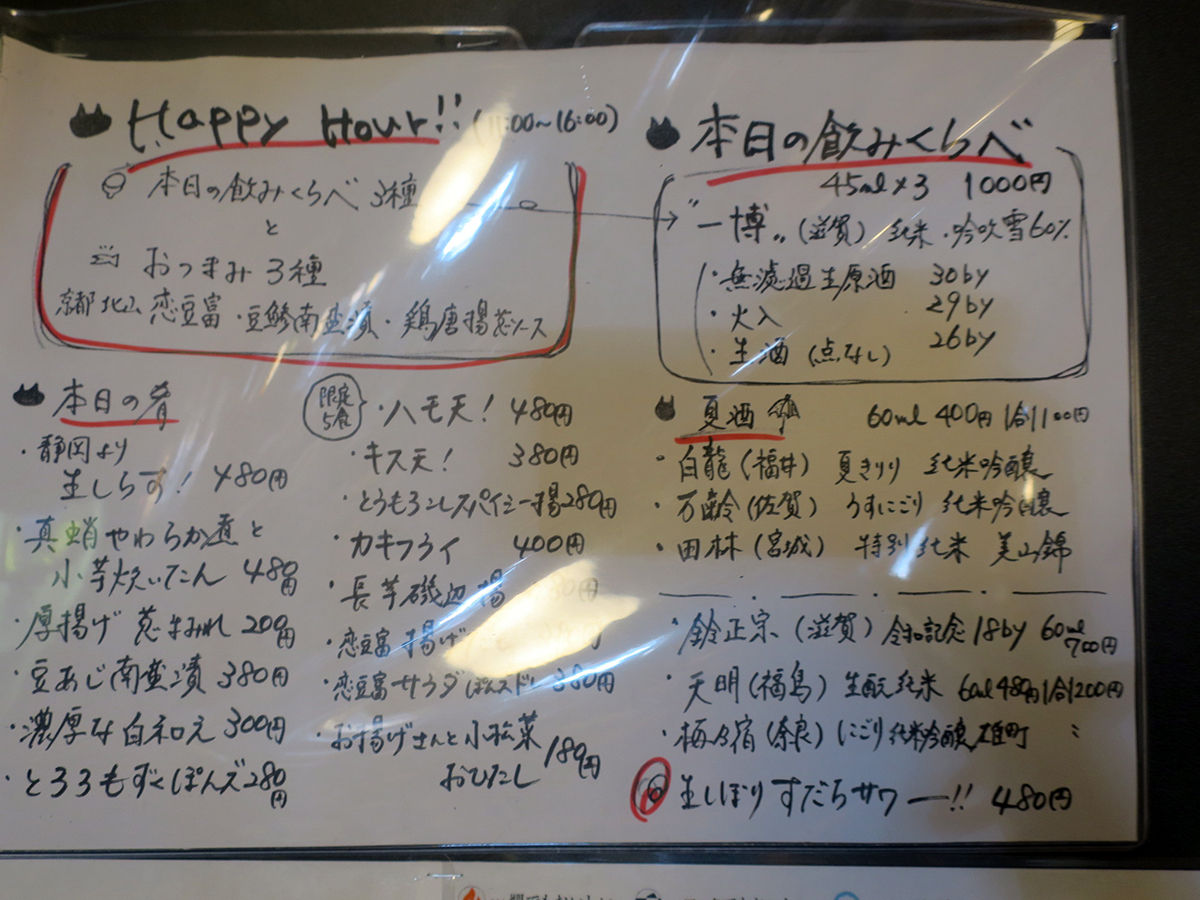 Happy Hour!! (11:00~16:00)
本日の飲みくらべ 3種
と
おつまみ 3種
京都北山 恋豆富・豆鯵南蛮漬・鶏唐揚葱ソース
本日の肴
・静岡より
生しらす! 480円
・真蛸やわらか煮と
小芋炊いたん 480円
・厚揚げ 葱まみれ 200円
・豆あじ南蛮漬 380円
・濃厚な白和え 300円
・とろろもずくぽんズ 280円
限定
5食
・ハモ天! 480円
・キス天! 380円
・とうもろこしスパイシー揚 280円
・カキフライ 400円
・長芋磯辺揚
・恋豆富 揚げ
・恋豆富サラダ 380円
・お揚げさんと小松菜
おひたし 180円
本日の飲みくらべ
45ml×3 1000円
"一博" (滋賀) 純米・吟吹雪60%
・無濾過生原酒 30by
・火入 29by
・生酒 (点なし) 26by
夏酒 60ml 400円 1合1100円
・白龍 (福井) 夏きりり 純米吟醸
・万齢 (佐賀) うすにごり 純米吟醸
・田林 (宮城) 特別純米 美山錦
・鈴正宗 (滋賀) 令和記念 18by 60ml 700円
・天明 (福島) 生酛純米 60ml 480円 1合1200円
・梅乃宿 (奈良) にごり純米吟醸 雄町 〃
生しぼり すだちサワー!! 480円